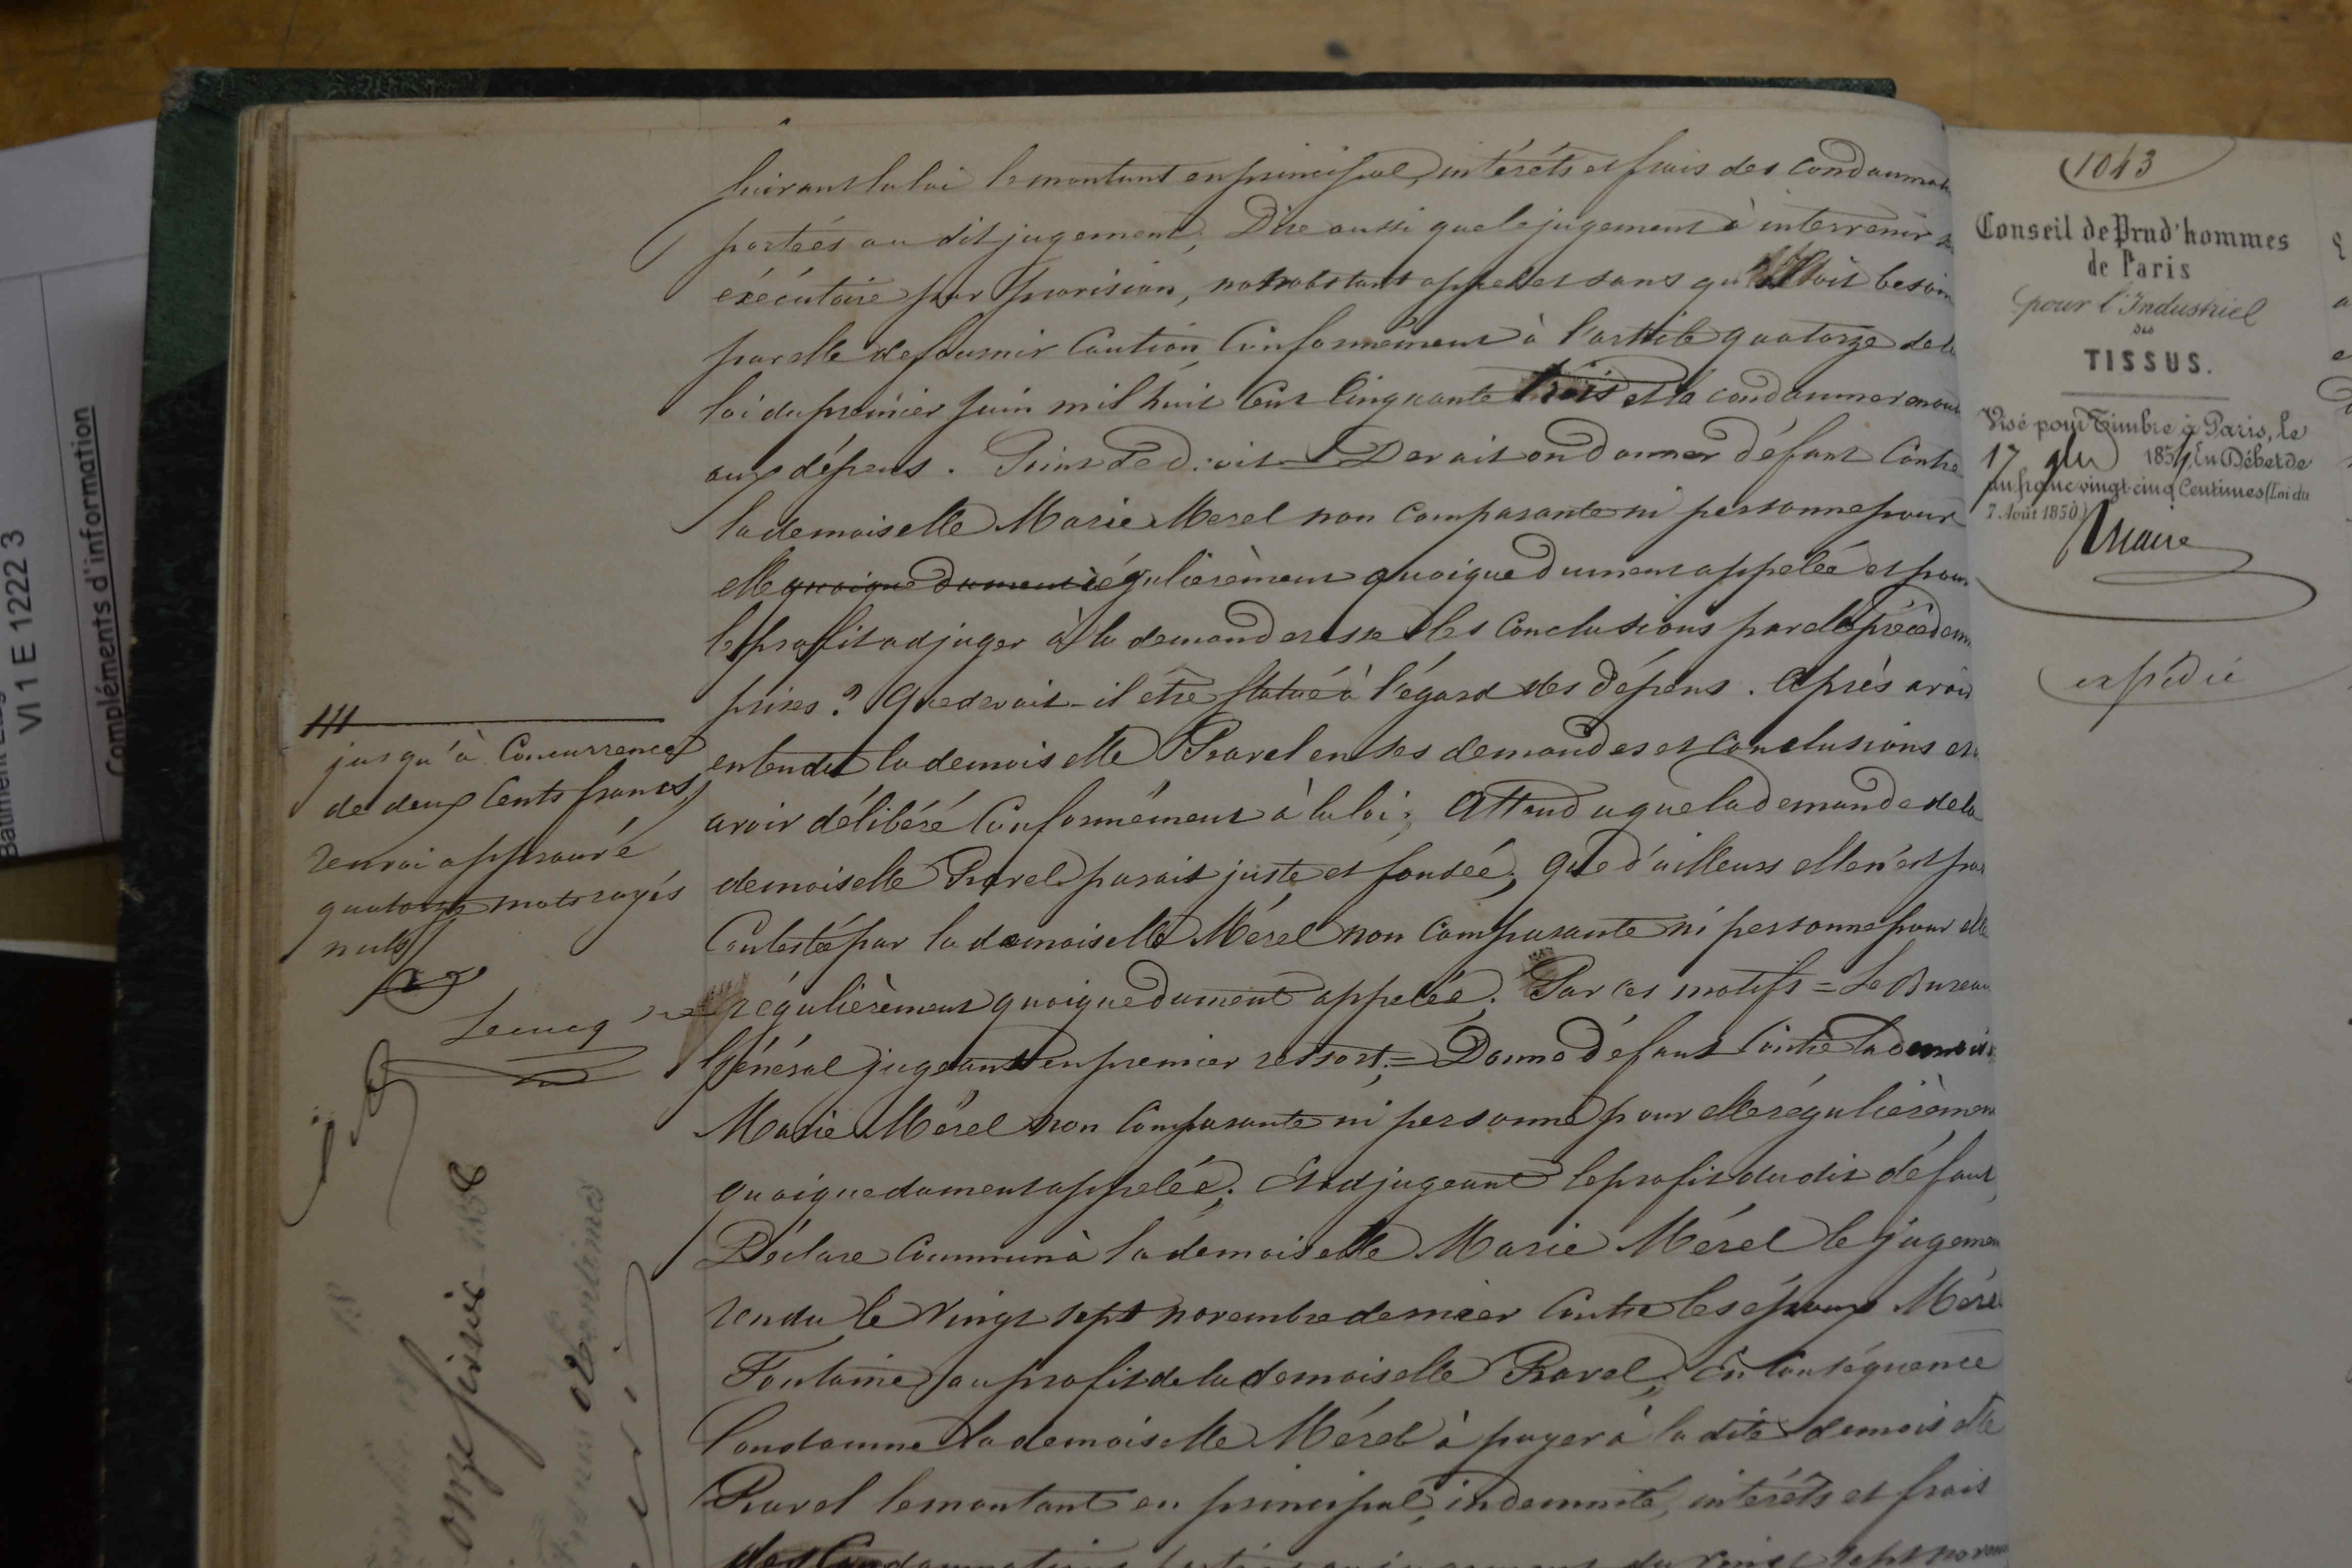 suivant la loi le montant en principal, intérêts et frais des condamnati
portées au dit jugement; Dire aussi que le jugement à intervenir
éxécutoire par provision, nonobstant appel et sans qu'il soit besoin
par elle de fournir Caution, Conformément à l'article quatorze de la
loi du premier juin mil huit Cent Cinquante trois et la condamner
aux dépens. Point de Droit = Devait on donner défaut Contre
la demoiselle Marie Merel non Comparante ni personne pour
elle quoique dument régulièrèment quoique dument appelée et pour
le profit adjuger à la demanderesse les Conclusions par elle précédem
prises? Que devait-il être statué à l'égard des dépens. Après avoir
entendu la demoiselle Pravel en ses demandes et conclusions et
avoir délibéré Conformément à la loi; Attendu que la demande de la
demoiselle Pravel parait juste et fondée; Que d'ailleurs elle n'est pas
Contestée par la demoiselle Mérel non Comparante ni personne pour elle
régulièrèment quoique dument appelée; Par ces motifs = Le Bureau
Général jugeant en premier ressort; = Donne défaut Contre la demois
Marie Mérel non Comparante ni personne pour elle régulièrèment
quoique dument appelée; Et adjugeant le profit du dit défaut,
Déclare Commun à la demoiselle Marie Mérel le jugemen
rendu le Vingt sept novembre dernier Contre les époux Mérel
Fontaine au profit de la demoiselle Pravel; En Conséquence
Condamne la demoiselle Mérel à payer à la dite demoiselle
Pravel le montant en principal, indemnité, intérêts et frais
des Condamnations portées au jugement du Vingt sept novem
jusqu'à Concurrence
de deux Cents francs,
renvoi approuvé
quatorze mots rayés
nuls
Lecucq
onze février 1858
centimes
1043
Conseil de Prud'hommes
de Paris
pour l'Industriel
des
TISSUS.
Visé pour Timbre à Paris, le
17 185 En Débet de
un franc vingt cinq Centimes (Loi du
7 Août 1850)
expédié
VI 1 E 1222 3
Compléments d'information